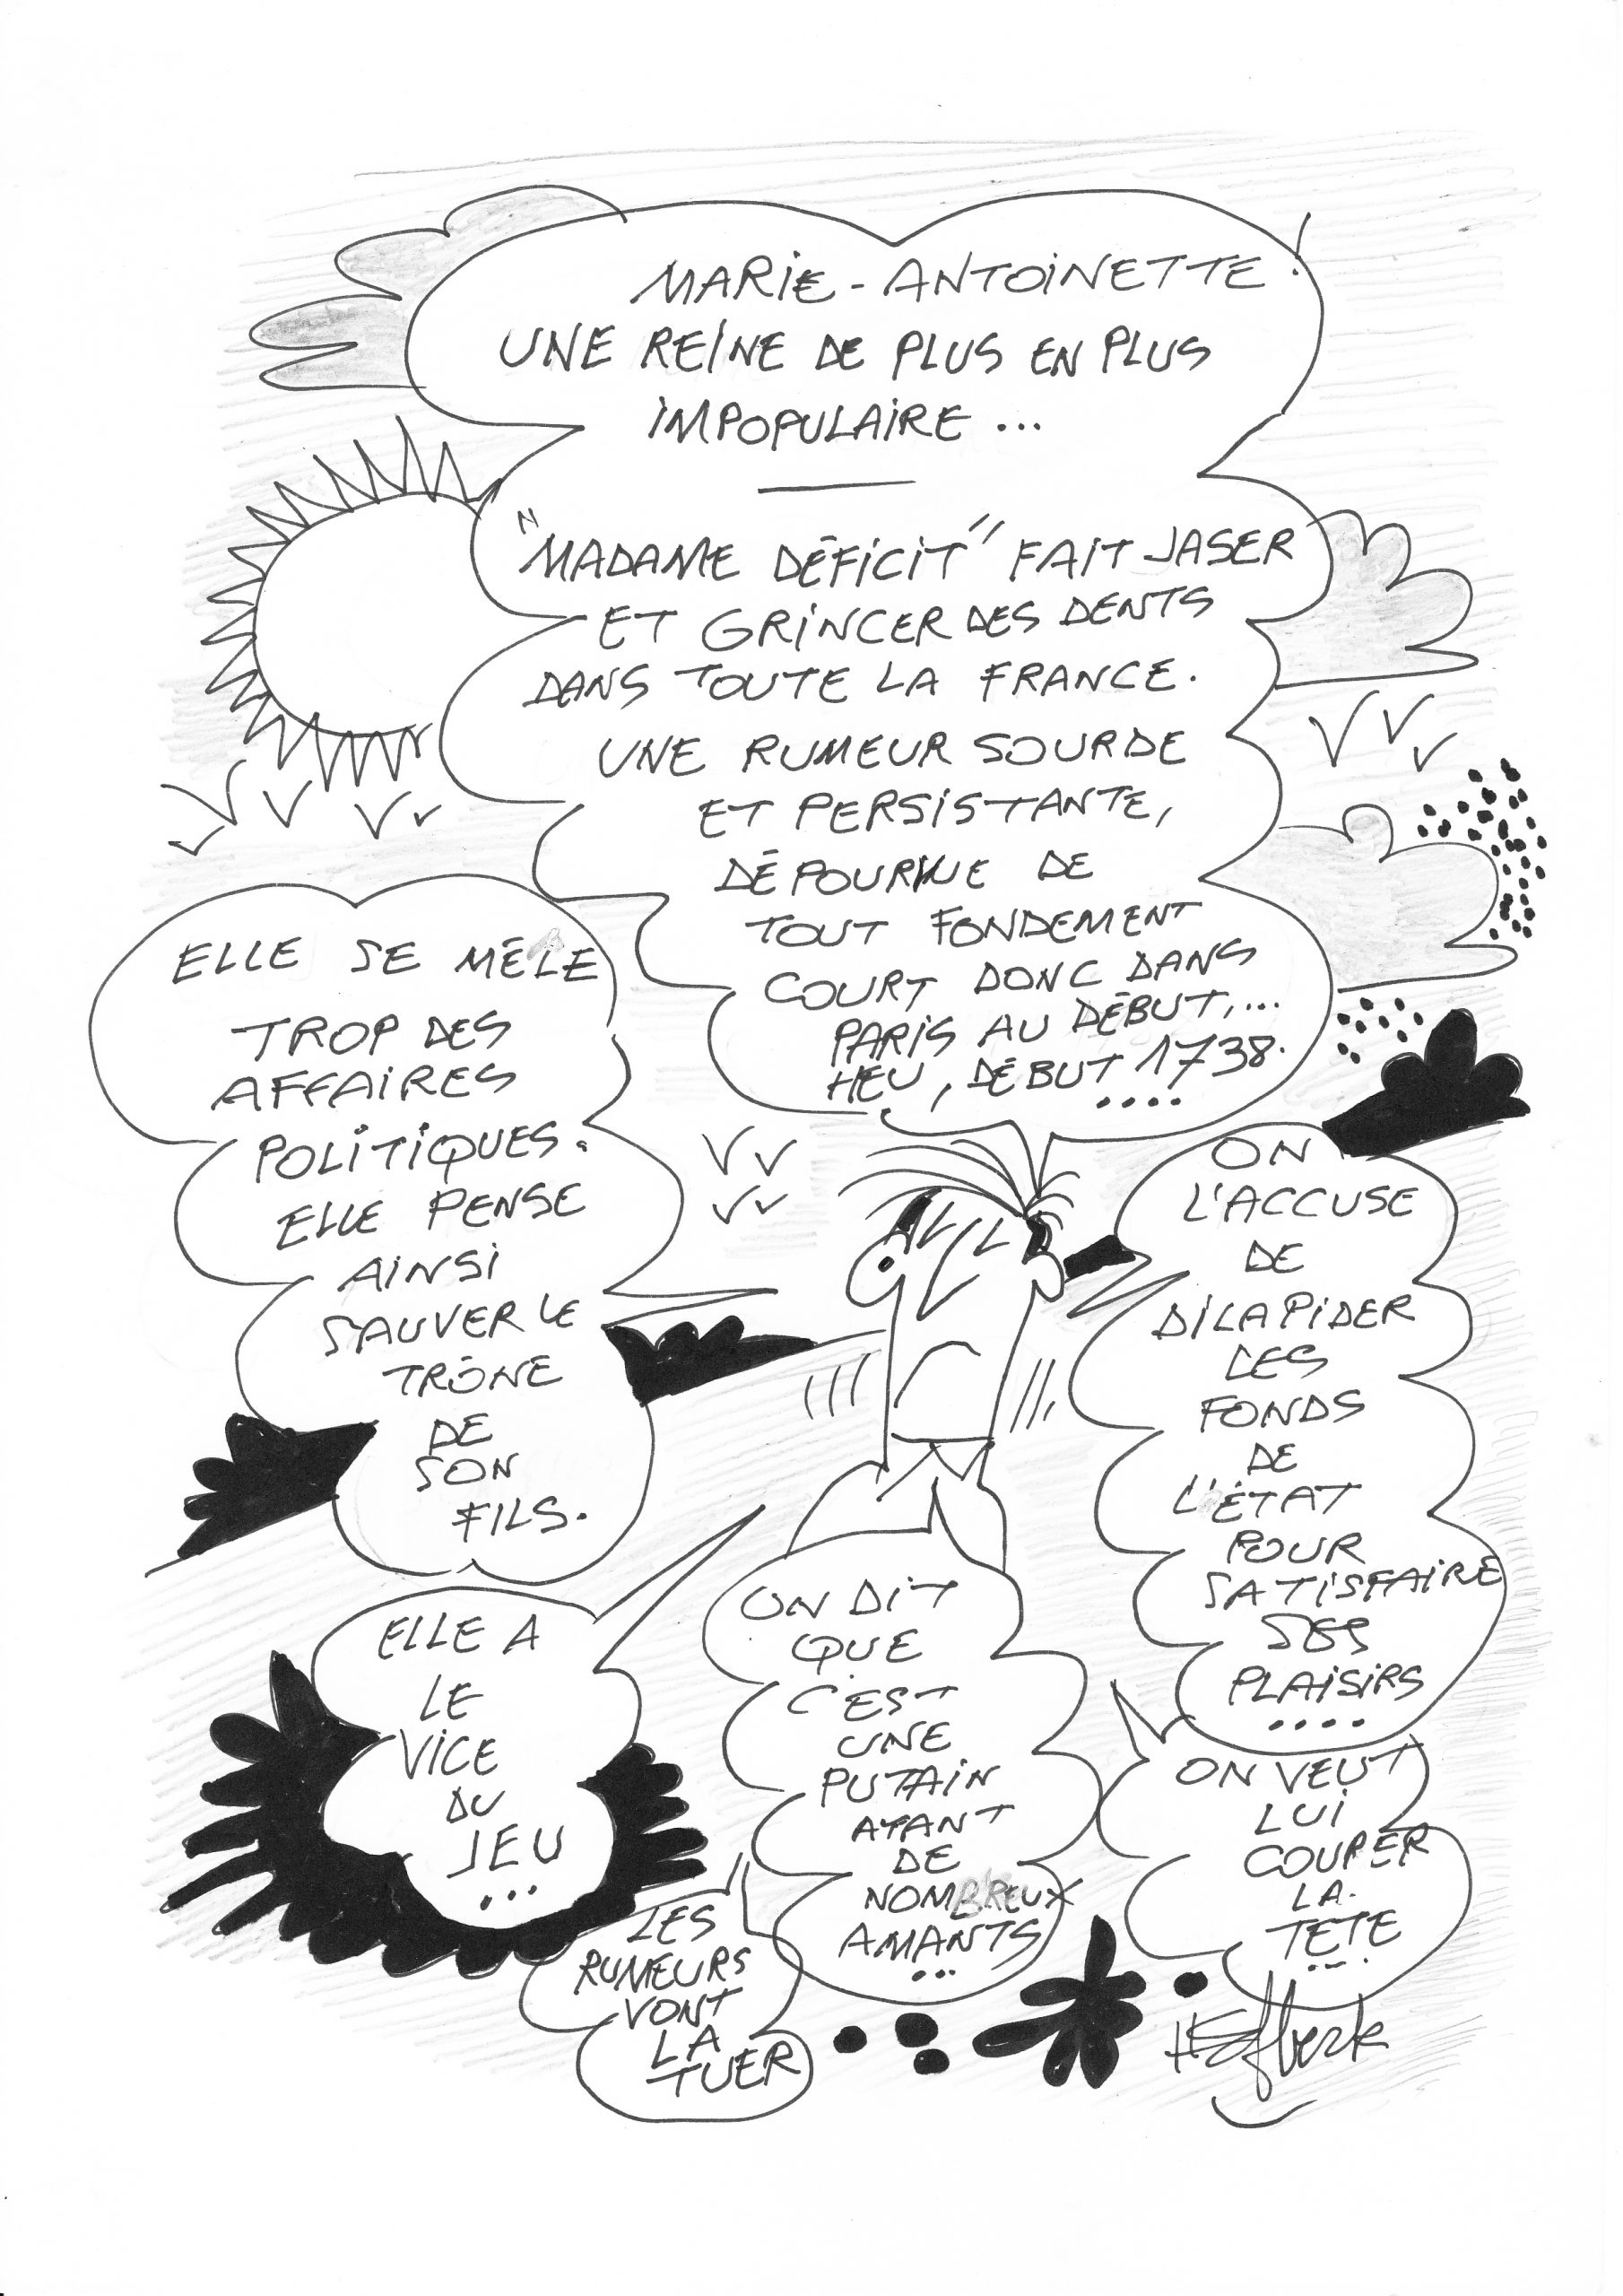 MARIE-ANTOINETTE !
UNE REINE DE PLUS EN PLUS
IMPOPULAIRE ...
"MADAME DÉFICIT" FAIT JASER
ET GRINCER DES DENTS
DANS TOUTE LA FRANCE.
UNE RUMEUR SOURDE
ET PERSISTANTE,
DÉPOURVUE DE
TOUT FONDEMENT
COURT DONC DANS
PARIS AU DÉBUT,...
HEU, DÉBUT 1738.
....
ELLE SE MÊLE
TROP DES
AFFAIRES
POLITIQUES.
ELLE PENSE
AINSI
SAUVER LE
TRÔNE
DE
SON
FILS.
ON
L'ACCUSE
DE
DILAPIDER
LES
FONDS
DE
L'ÉTAT
POUR
SATISFAIRE
SES
PLAISIRS
....
ELLE A
LE
VICE
DU
JEU
...
ON DIT
QUE
C'EST
UNE
PUTAIN
AYANT
DE
NOMBREUX
AMANTS
...
ON VEUT
LUI
COUPER
LA
TÊTE
...
LES
RUMEURS
VONT
LA
TUER